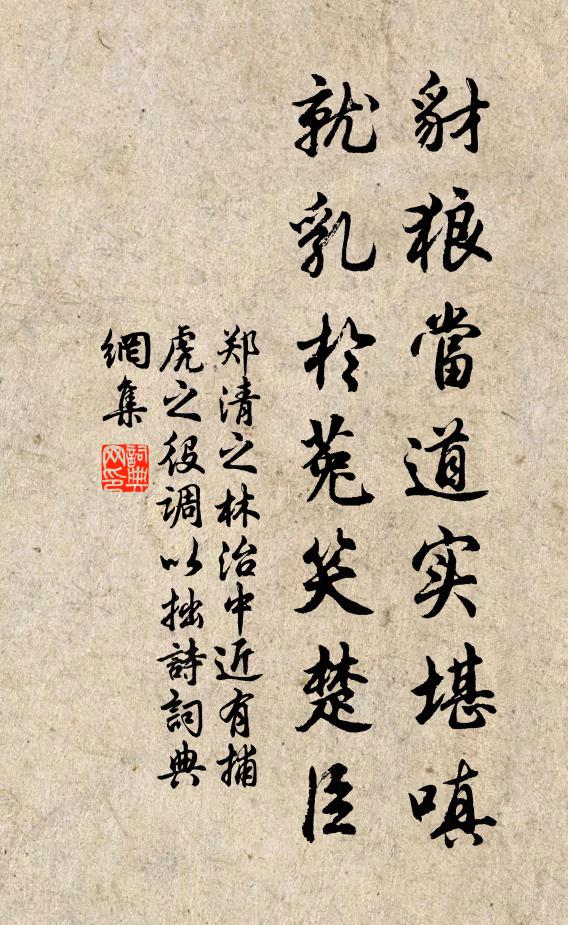 豺狼當道实堪嗔
就乳於菟笑楚臣
郑清之林治中近有捕
虎之役调以拙詩詞典
網集
詞典网印